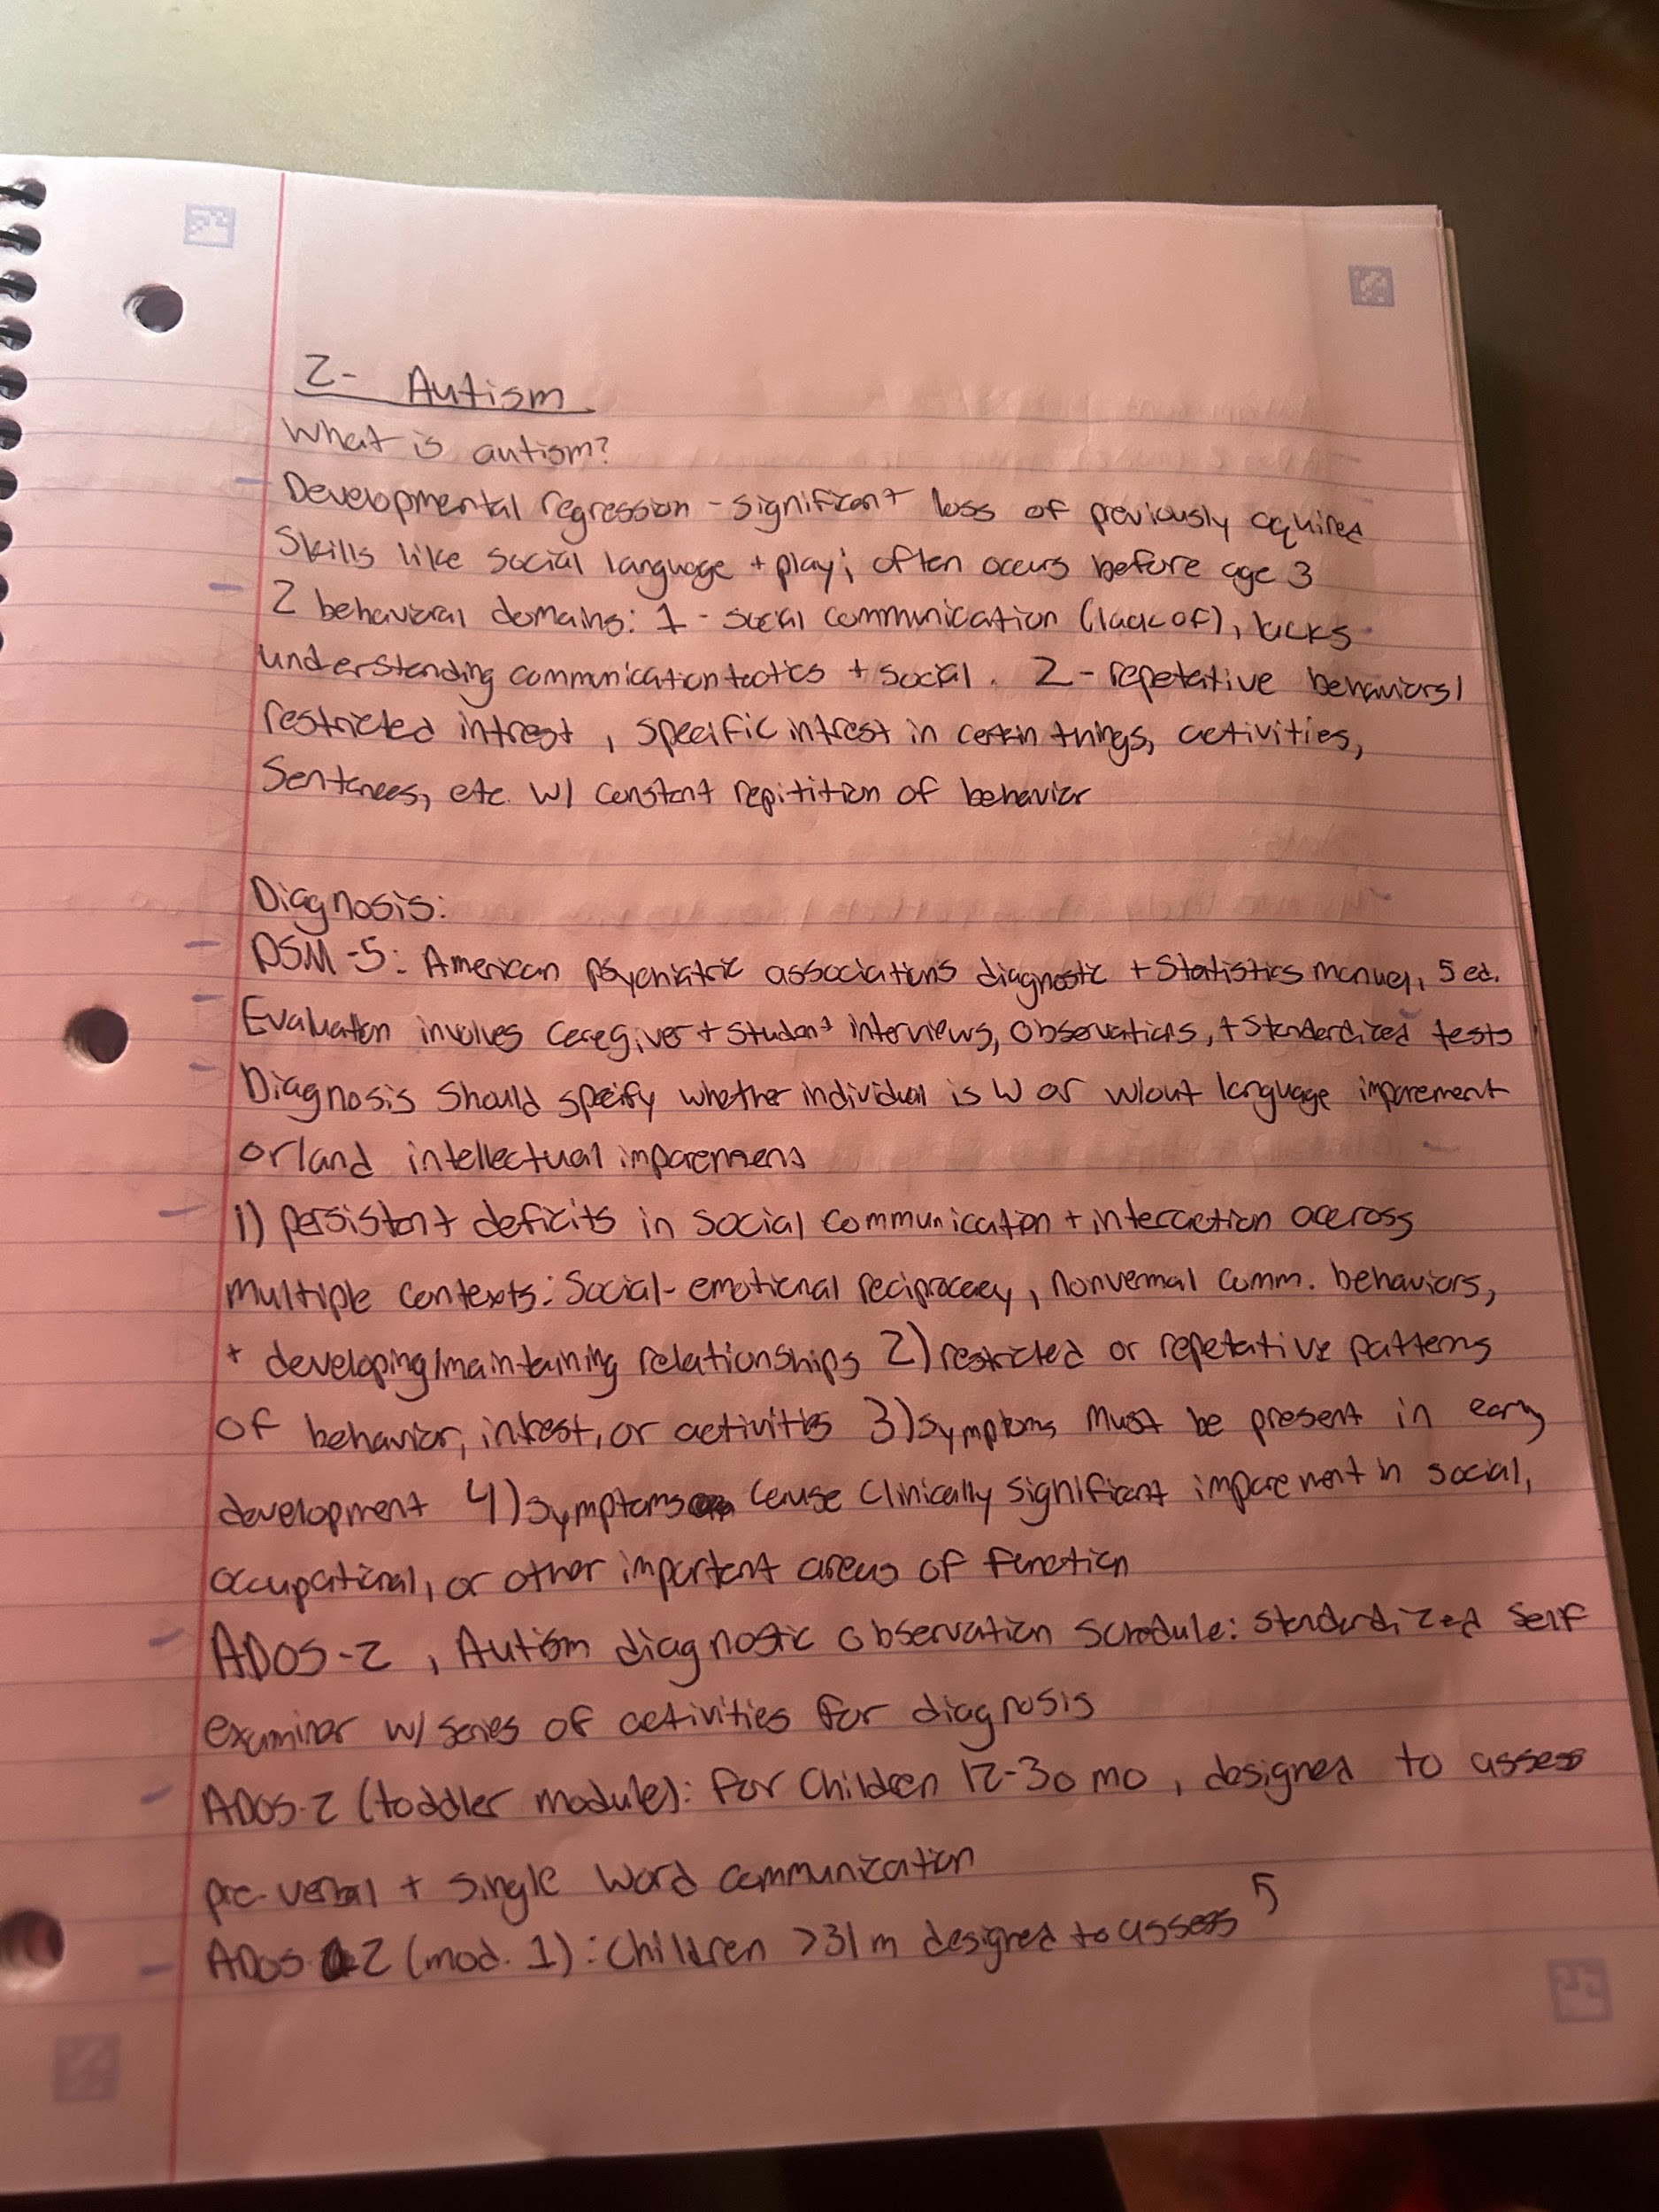 2- Autism
What is autism?
- Developmental regression - significant loss of previously aquired
skills like social language + play; often occurs before age 3
- 2 behavioral domains: 1 - social communication (lack of), lacks
understanding communication tactics + social. 2 - repetative behaviors/
restricted intrest, specific intrest in certain things, activities,
sentences, etc. w/ constant repitition of behavior
Diagnosis:
- DSM-5: American psychiatric associations diagnostic + statistics manuel, 5 ed.
- Evaluation involves caregiver + student interviews, observations, + standardized tests
- Diagnosis should specify whether individual is w or w/out language imparement
or/and intellectual imparement
- 1) persistant deficits in social communication + interaction accross
multiple contexts: social-emotional reciprocacy, nonvermal comm. behaviors,
+ developing/maintaining relationships 2) restricted or repetative patterns
of behavior, intrest, or activities 3) symptoms must be present in early
development 4) symptoms cause clinically significant imparement in social,
occupational, or other important areas of function
- ADOS-2, Autism diagnostic observation schedule: standardized self
examiner w/ series of activities for diagnosis
- ADOS-2 (toddler module): for children 12-30 mo, designed to assess
pre-verbal + single word communication
- ADOS 2 (mod. 1): children >31 m designed to assess